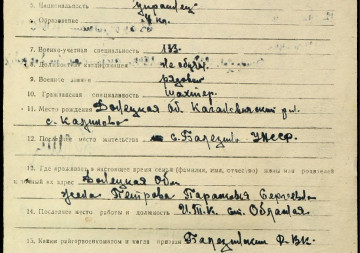 5. Национальность украинец
6. Образование 4 кл.
7. Военно-учетная специальность 133
8. Должностная квалификация не обучен
9. Военное звание рядовой
10. Гражданская специальность шахтер.
11. Место рождения Донецкая обл
с.
12. Последнее место жительства с. Балезино УАССР
13. Где проживает в настоящее время семья (фамилия, имя, отчество) жены или родителей
и точный их адрес Донецкая Обл
жена Петрова Сергеевна
14. Последнее место работы и должность И.Т.К. ст.
15. Каким райгорвоенкоматом и когда призван Балезинским Р.В.К.